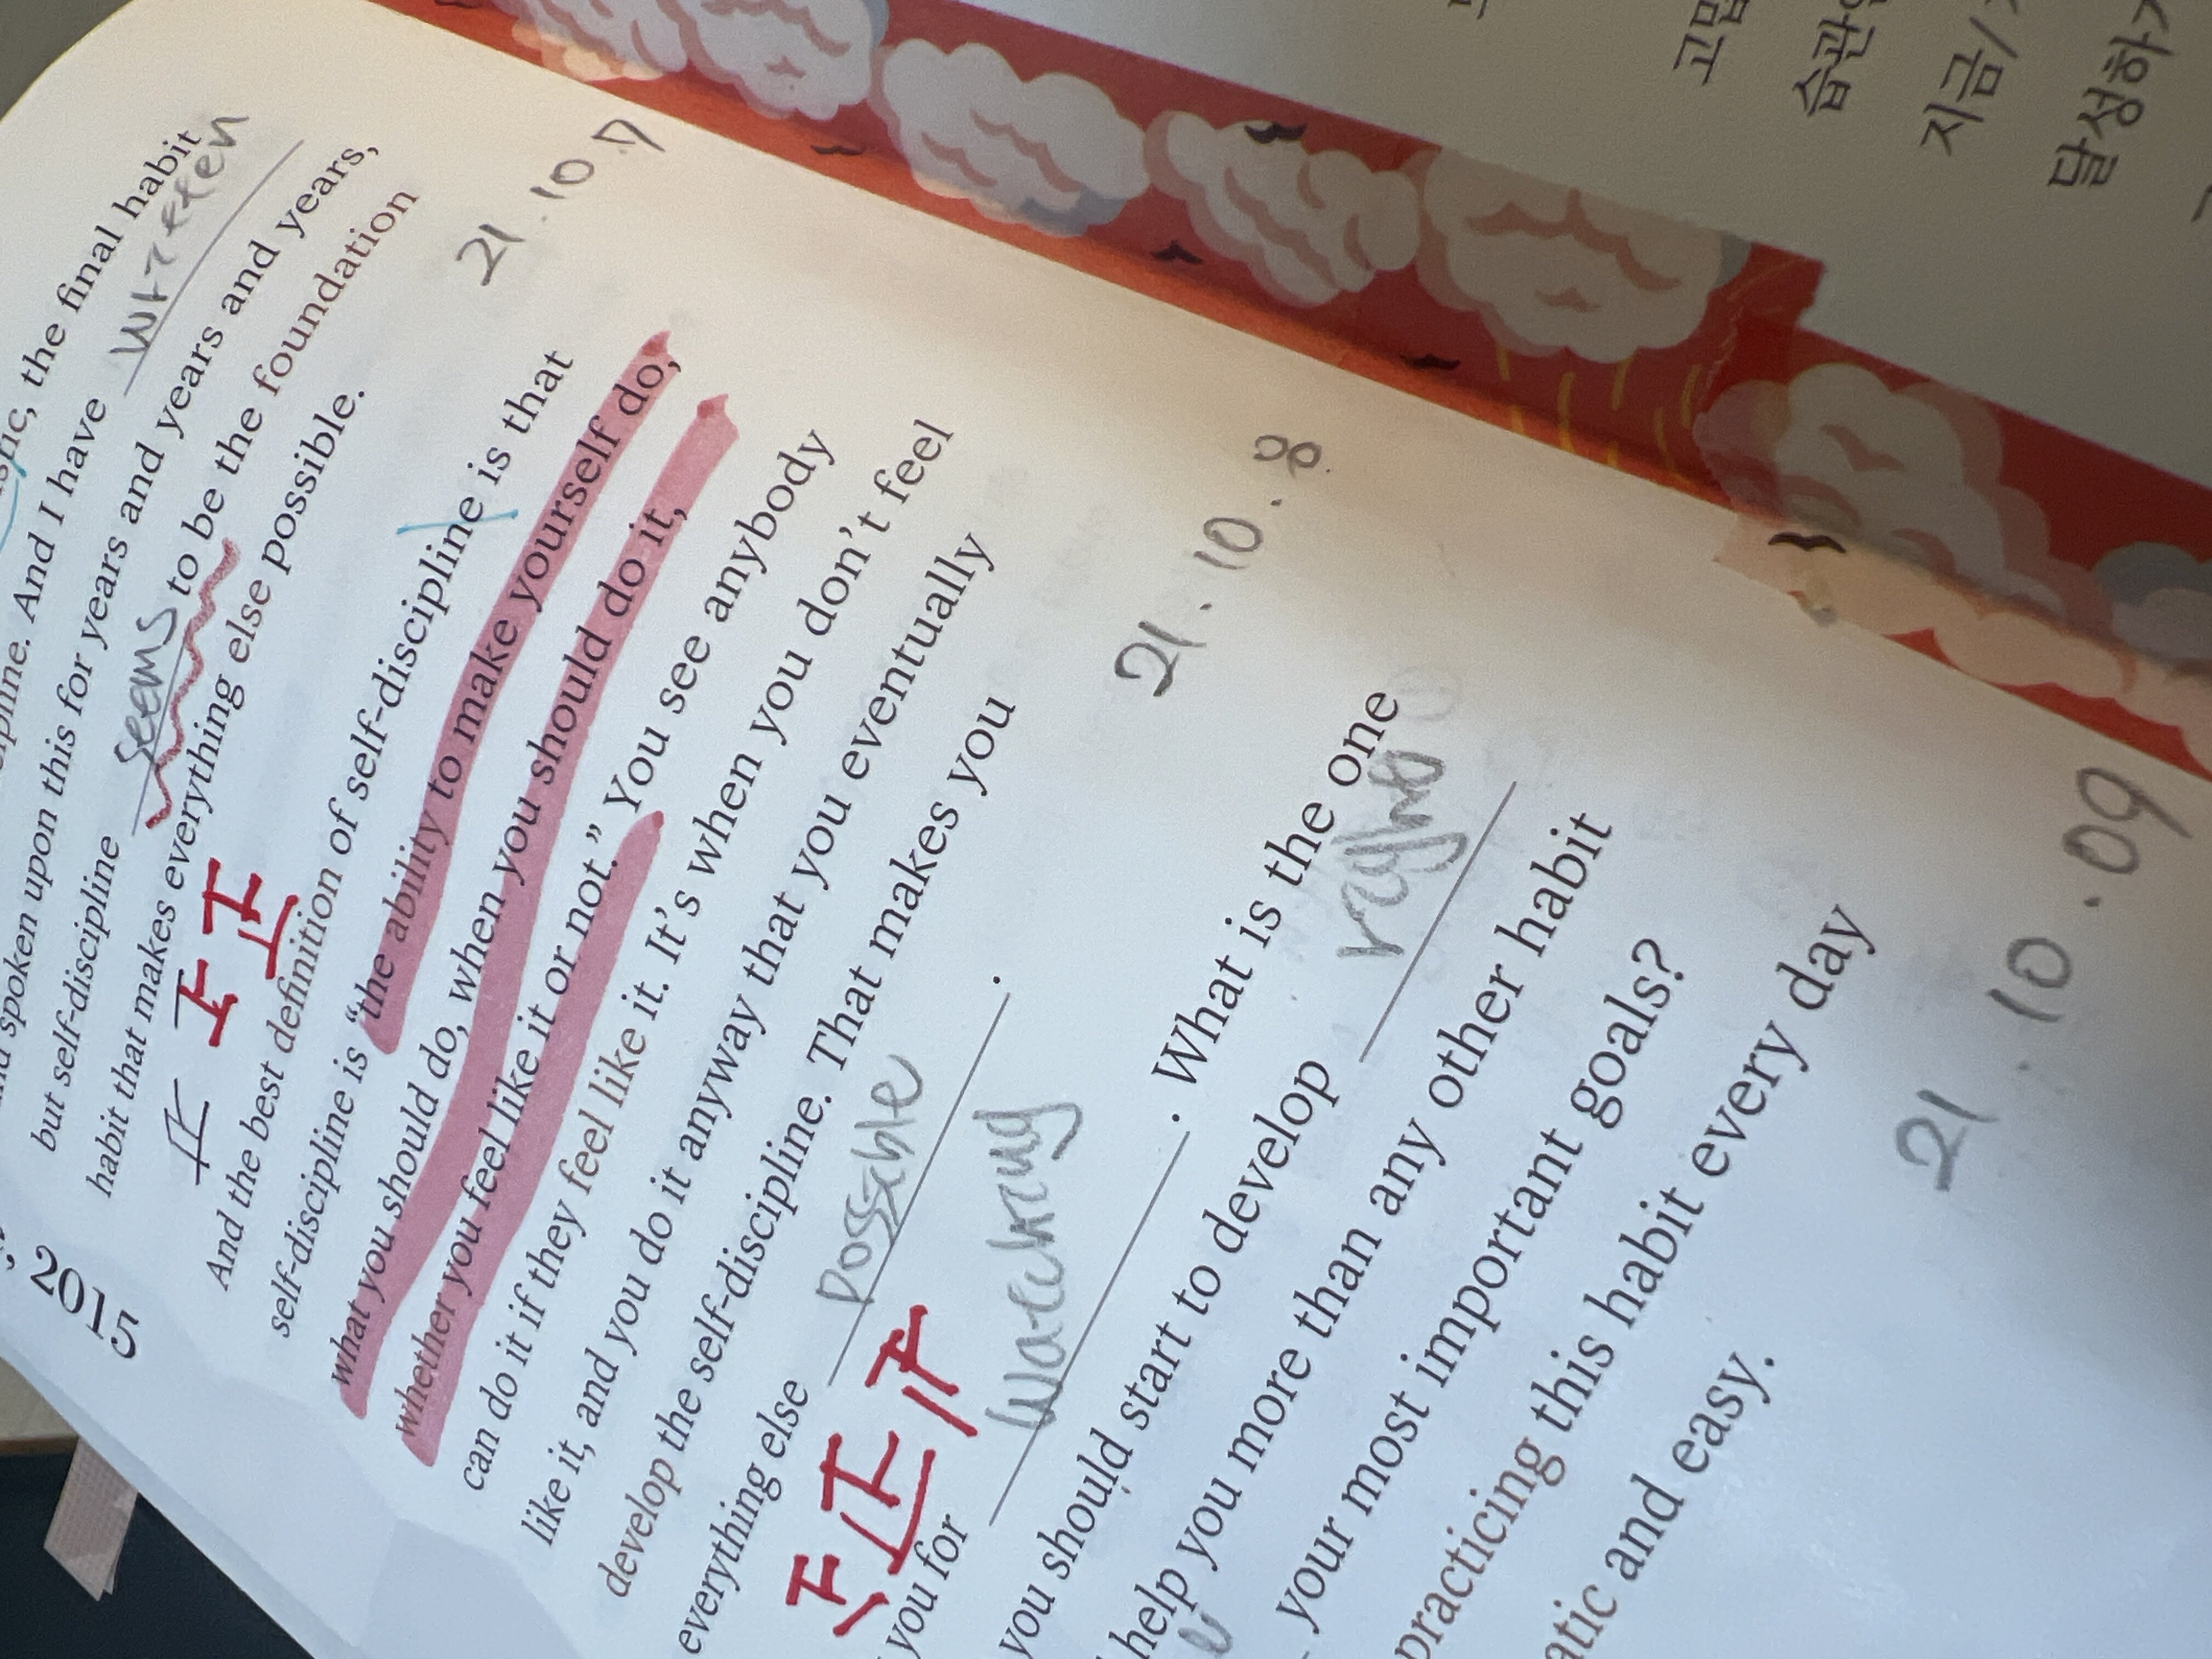 the final habit
. And I have written
spoken upon this for years and years and years,
but self-discipline seems to be the foundation
habit that makes everything else possible.
21.10.7
And the best definition of self-discipline is that
self-discipline is “the ability to make yourself do,
what you should do, when you should do it,
whether you feel like it or not.” You see anybody
can do it if they feel like it. It’s when you don’t feel
like it, and you do it anyway that you eventually
develop the self-discipline. That makes you
everything else possible .
21.10.8
you for watching . What is the one
you should start to develop
help you more than any other habit
your most important goals?
practicing this habit every day
and easy.
21.10.09
20
15
습관
지금/
달성하